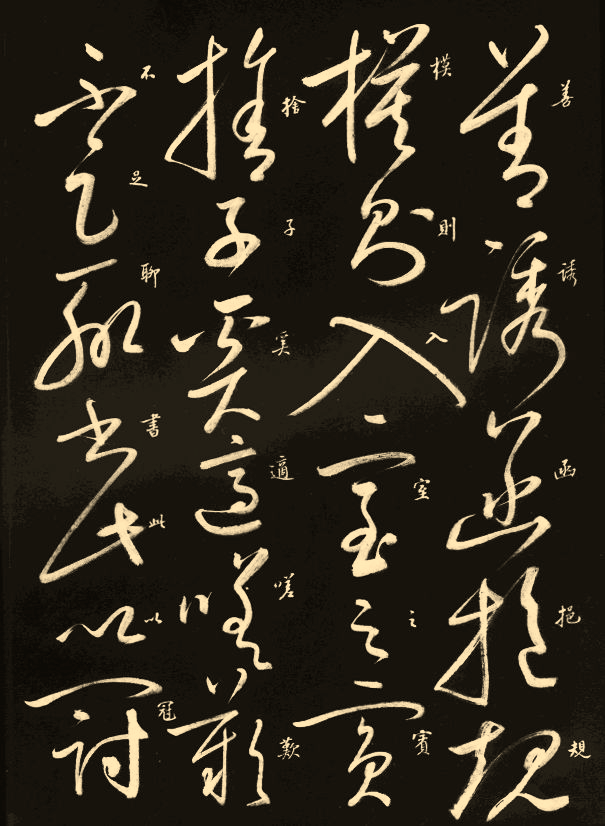 善誘函挹規
模則入室之賓
捨子奚適嗟歎
不足聊書此以冠